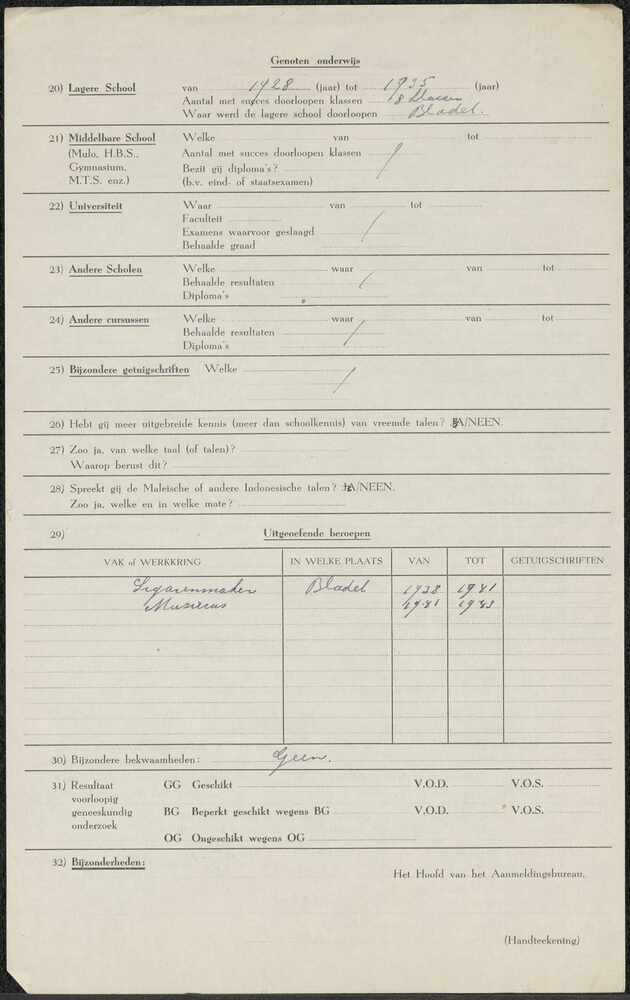 Genoten onderwijs
20) Lagere School van 1928 (jaar) tot 1935 (jaar)
Aantal met succes doorloopen klassen 8 klassen
Waar werd de lagere school doorloopen Bladel.
21) Middelbare School Welke van tot
(Mulo, H.B.S., Aantal met succes doorloopen klassen /
Gymnasium, Bezit gij diploma's?
M.T.S. enz.) (b.v. eind- of staatsexamen)
22) Universiteit Waar van tot
Faculteit
Examens waarvoor geslaagd /
Behaalde graad
23) Andere Scholen Welke waar van tot
Behaalde resultaten /
Diploma's
24) Andere cursussen Welke waar van tot
Behaalde resultaten /
Diploma's
25) Bijzondere getuigschriften Welke
/
26) Hebt gij meer uitgebreide kennis (meer dan schoolkennis) van vreemde talen? JA/NEEN.
27) Zoo ja, van welke taal (of talen)?
Waarop berust dit?
28) Spreekt gij de Maleische of andere Indonesische talen? JA/NEEN.
Zoo ja, welke en in welke mate?
29) Uitgeoefende beroepen
VAK of WERKKRING IN WELKE PLAATS VAN TOT GETUIGSCHRIFTEN
Sigarenmaker Bladel 1938 1941
Musicus 1941 1943
30) Bijzondere bekwaamheden: Geen.
31) Resultaat GG Geschikt V.O.D. V.O.S.
voorloopig
geneeskundig BG Beperkt geschikt wegens BG V.O.D. V.O.S.
onderzoek
OG Ongeschikt wegens OG
32) Bijzonderheden:
Het Hoofd van het Aanmeldingsbureau,
(Handteekening)